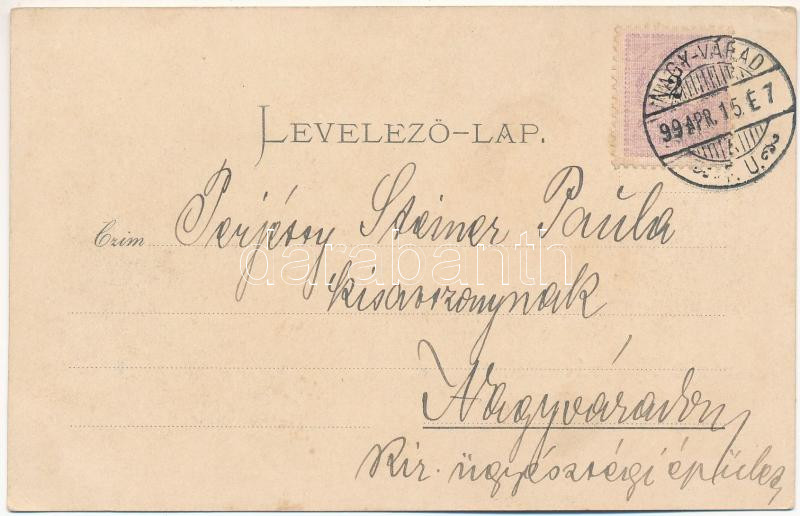 NAGY-VÁRAD
99 APR. 15. É 7
F. U.
LEVELEZŐ-LAP.
Czim Perjéssy Steiner Paula
kisasszonynak
Nagyváradon
Kir. ügyészségi épület
darabanth